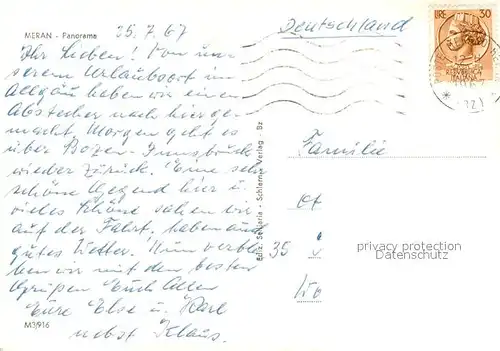 MERAN - Panorama
25.7.67
Ihr Lieben! Von un-
serem Urlaubsort im
Allgäu haben wir einen
Abstecher nach hier ge-
macht. Morgen geht es
über Bozen - Innsbruck
wieder zurück. Eine sehr
schöne Gegend hier u.
vieles Schöne sahen wir
auf der Fahrt, haben auch
gutes Wetter. Nun verblei-
ben wir mit den besten
Grüßen Euch Allen
Eure Else u. Karl
nebst Klaus.
M3/916
Ediz. - Schlernia Verlag - Bz
Deutschland
LIRE 30
Familie
35
privacy protection
Datenschutz